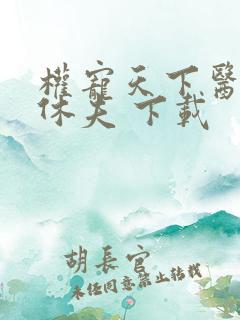 權寵天下醫
休夫 下載
胡長官
未經同意禁止轉載